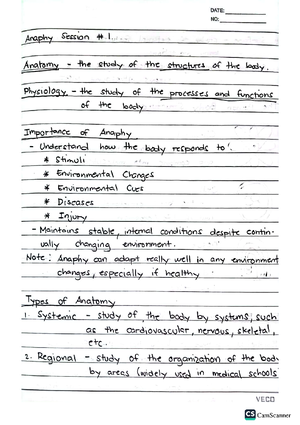 DATE:
NO.:
Anaphy Session #1
Anatomy - the study of the structures of the body.
Physiology - the study of the processes and functions
of the body
Importance of Anaphy
- Understand how the body responds to:
* Stimuli
* Environmental Changes
* Environmental Cues
* Diseases
* Injury
- Maintains stable, internal conditions despite contin-
ually changing environment.
Note: Anaphy can adapt really well in any environment
changes, especially if healthy
Types of Anatomy
1. Systemic - study of the body by systems, such
as the cardiovascular, nervous, skeletal,
etc.
2. Regional - study of the organization of the body
by areas (widely used in medical schools
VECO
CS CamScanner